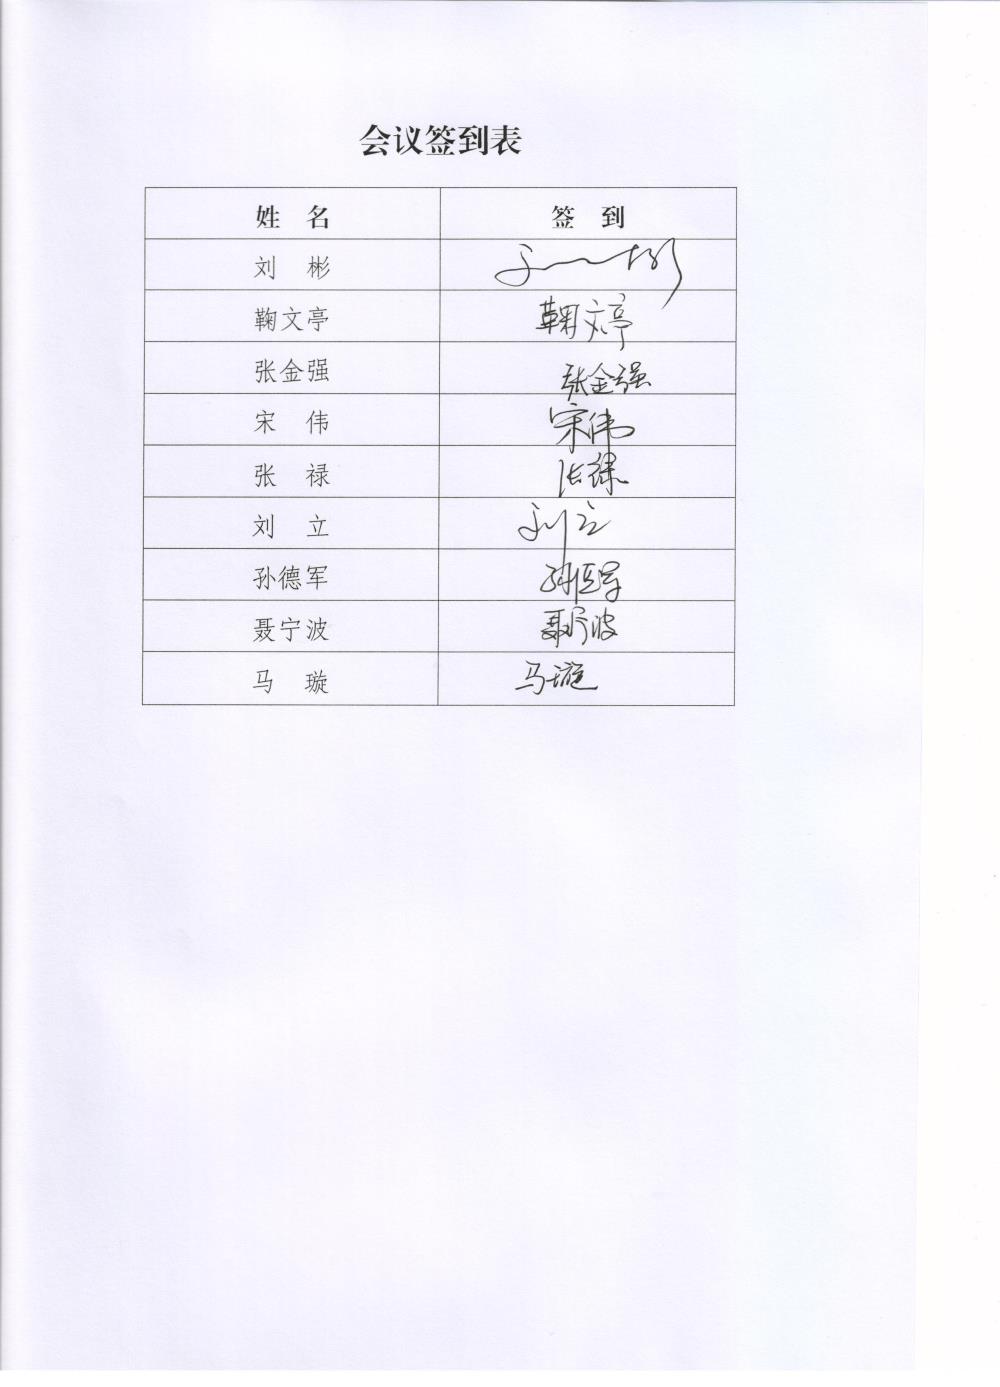 会议签到表
姓 名 签 到
刘 彬 刘彬
鞠文亭 鞠文亭
张金强 张金强
宋 伟 宋伟
张 禄 张禄
刘 立 刘立
孙德军 孙德军
聂宁波 聂宁波
马 璇 马璇